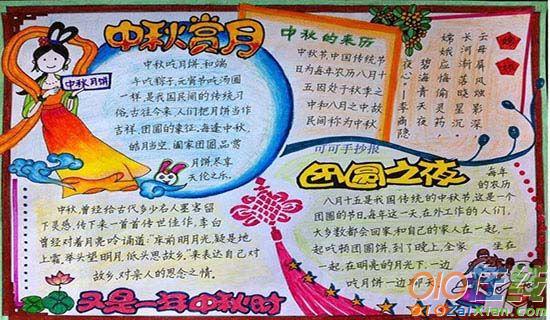 中秋赏月
中秋月饼
中秋吃月饼,和端
午吃粽子、元宵节吃汤圆
一样,是我国民间的传统习
俗。古往今来,人们把月饼当作
吉祥、团圆的象征。每逢中秋,
皓月当空,阖家团圆,品赏
月饼尽享
天伦之乐。
中秋的来历
中秋节,中国传统节
日为每年农历八月十
五因处于秋季之
中和八月之中故
民间称为中秋
嫦娥
云母屏风烛影深
长河渐落晓星沉
嫦娥应悔偷灵药
碧海青天夜夜心
—李商隐
可可手抄报
团圆之夜
每年
的农历
八月十五是我国传统的中秋节,这是一个
团圆的节日,每年这一天,在外工作的人们,
大多数都会回家,和自己的家人在一起,一
起吃顿团圆饼,到了晚上,全家 坐在一
起,在明亮的月光下,一边
吃月饼一边聊天
中秋,曾经给古代多少名人墨客留
下灵感,传下来一首首传世佳作。李白
曾经对着月亮吟诵道:"床前明月光,疑是地
上霜。举头望明月,低头思故乡。"来表达自己对
故乡、对亲人的思念之情。
又是一年中秋时
zaixian.com